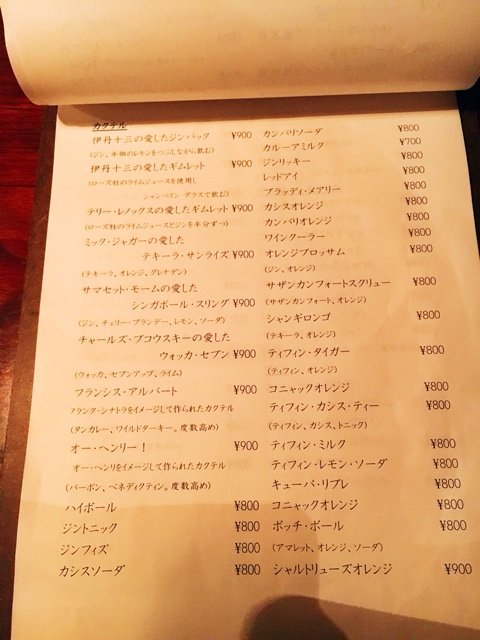 カクテル
伊丹十三の愛したジンバック ¥900
(ジン、半個のレモンをつぶしながら飲む)
伊丹十三の愛したギムレット ¥900
(ローズ社のライムジュースを使用し
シャンペイン・グラスで飲む)
テリー・レノックスの愛したギムレット ¥900
(ローズ社のライムジュースとジンを半分ずつ)
ミック・ジャガーの愛した
テキーラ・サンライズ ¥900
(テキーラ、オレンジ、グレナデン)
サマセット・モームの愛した
シンガポール・スリング ¥900
(ジン、チェリー・ブランデー、レモン、ソーダ)
チャールズ・ブコウスキーの愛した
ウォッカ・セブン ¥900
(ウォッカ、セブンアップ、ライム)
フランシス・アルバート ¥900
フランク・シナトラをイメージして作られたカクテル
(タンカレー、ワイルドターキー。度数高め)
オー・ヘンリー! ¥900
オー・ヘンリをイメージして作られたカクテル
(バーボン、ベネディクティン。度数高め)
ハイボール ¥800
ジントニック ¥800
ジンフィズ ¥800
カシスソーダ ¥800
カンパリソーダ ¥800
カルーアミルク ¥700
ジンリッキー ¥800
レッドアイ ¥800
ブラッディ・メアリー ¥800
カシスオレンジ ¥800
カンパリオレンジ ¥800
ワインクーラー ¥800
オレンジブロッサム ¥800
(ジン、オレンジ)
サザンカンフォートスクリュー ¥800
(サザンカンフォート、オレンジ)
シャンギロンゴ ¥800
(テキーラ、オレンジ)
ティフィン・タイガー ¥800
(ティフィン、オレンジ)
コニャックオレンジ ¥800
ティフィン・カシス・ティー ¥800
(ティフィン、カシス、トニック)
ティフィン・ミルク ¥800
ティフィン・レモン・ソーダ ¥800
キューバ・リブレ ¥800
コニャックオレンジ ¥800
ボッチ・ボール ¥800
(アマレット、オレンジ、ソーダ)
シャルトリューズオレンジ ¥900